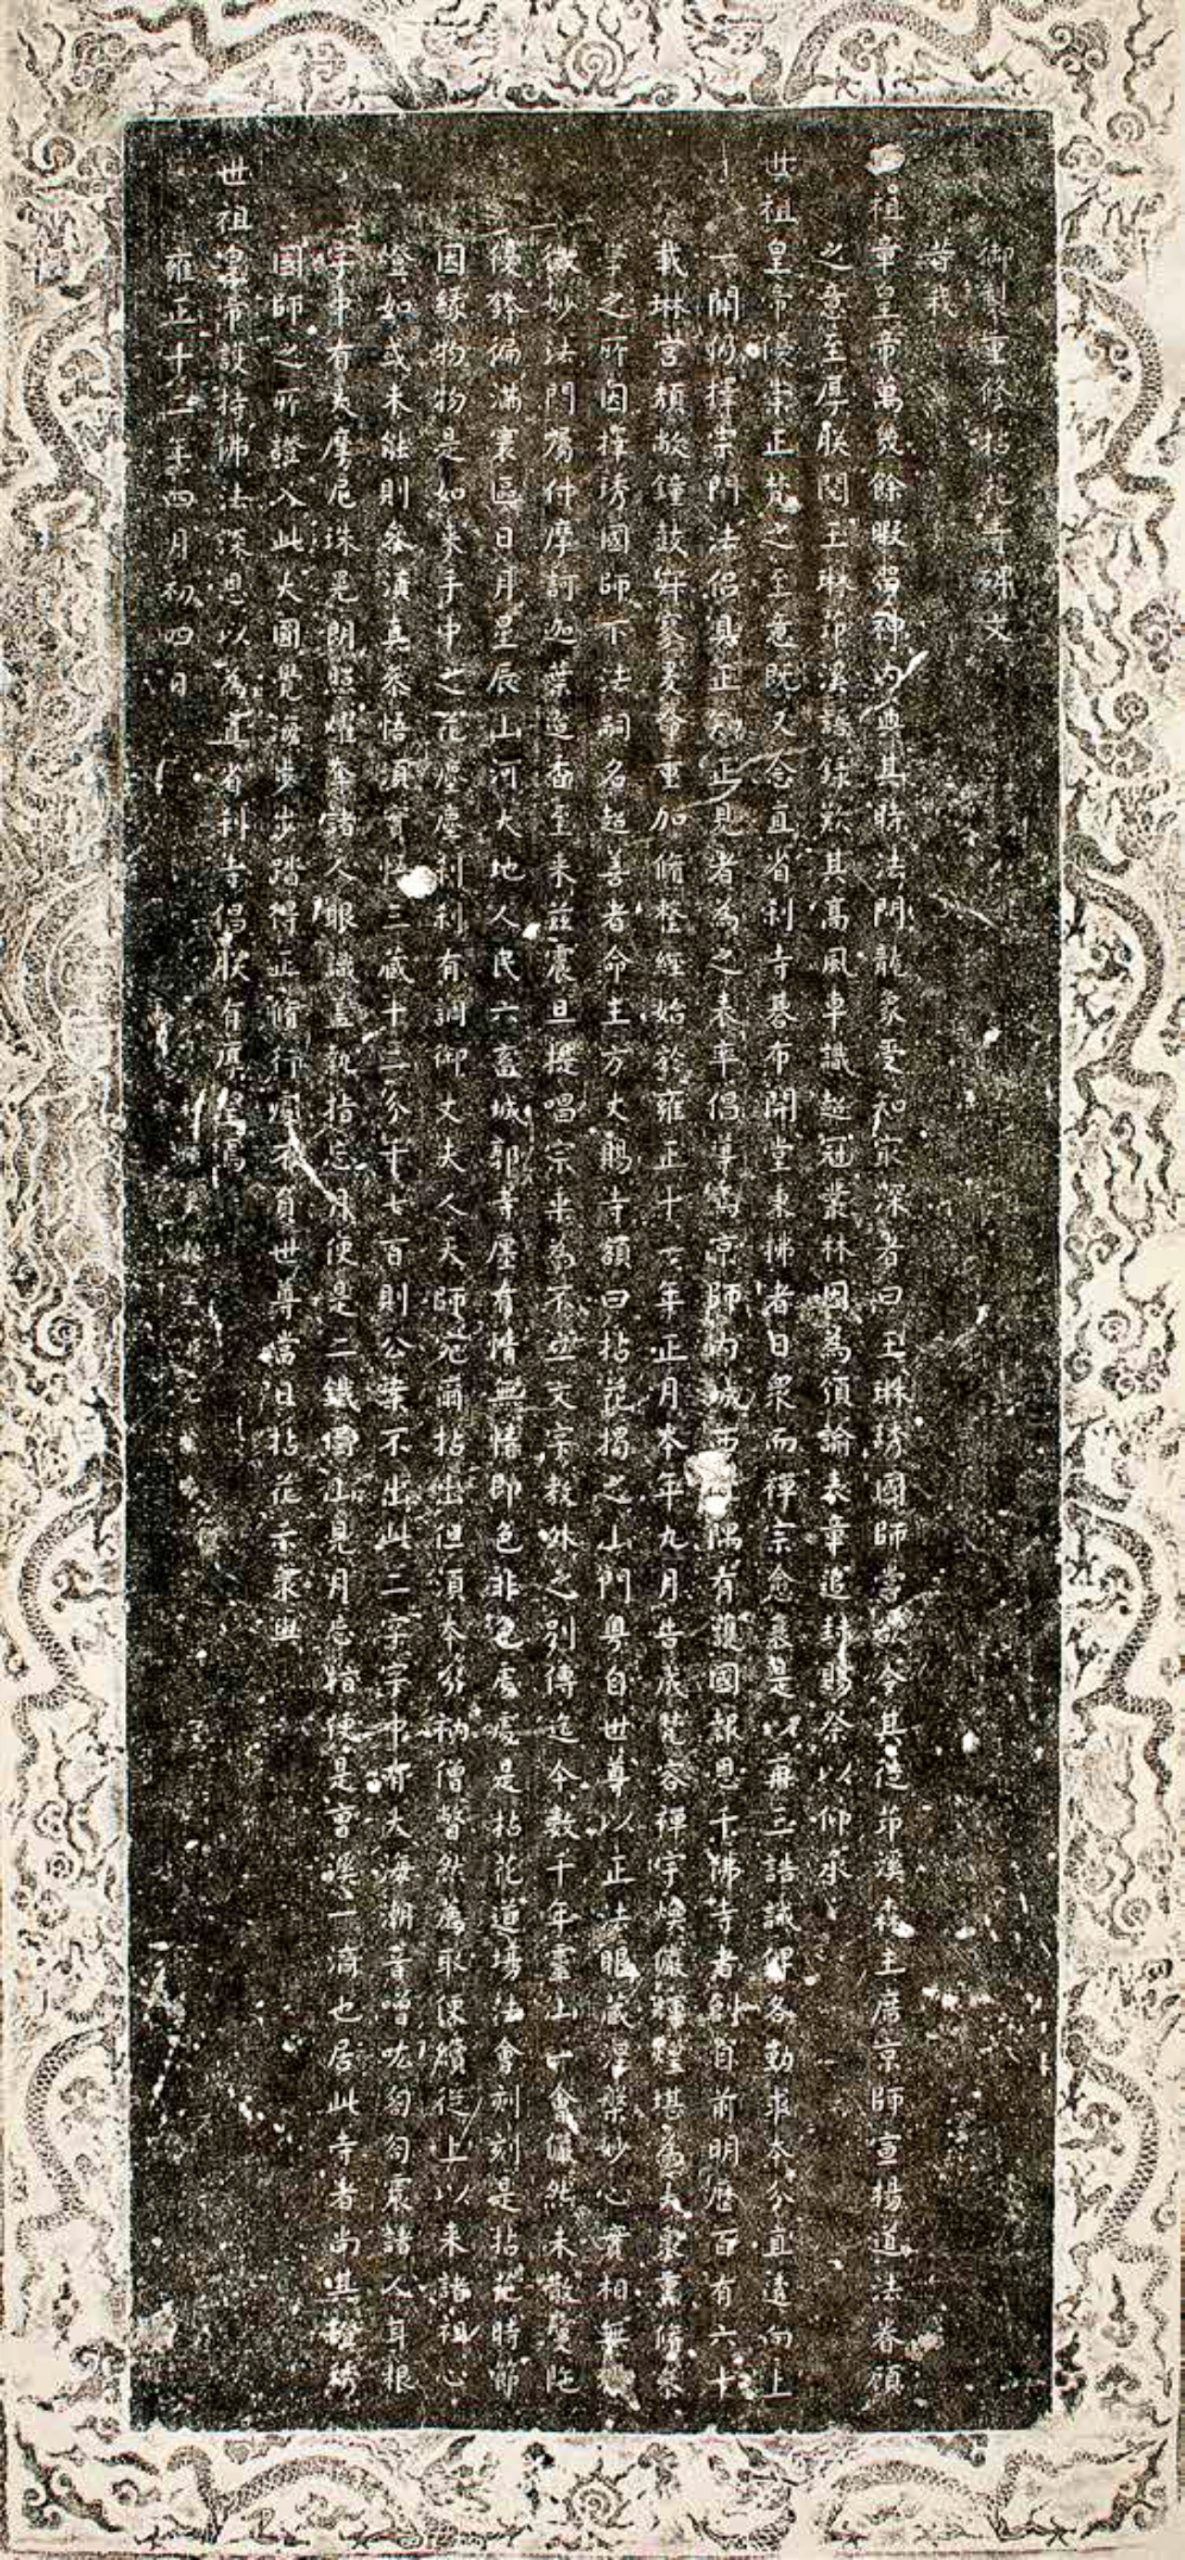 御製重修拈花寺碑文
昔我
世祖章皇帝萬幾餘暇留神內典其時法門龍象受知最深者曰玉琳琇國師嘗欲令其徒茚溪森主席京師宣揚道法眷顧
之意至厚朕閱玉琳茚溪語錄歎其高風卓識超冠叢林因為頒諭表章追封賜祭以仰承
世祖皇帝優崇正梵之至意既又念直省剎寺碁布開堂秉拂者日眾而禪宗愈衰是以再三誥誡俾各勤求本分直透向上
一開仍擇宗門法侶具正知正見者為之表率倡導焉京師內城西隅有護國報恩千佛寺者創自前明歷百有六十
載琳宮頹敝鐘鼓寂寥爰命重加修整經始於雍正十一年正月本年九月告成梵容禪宇煥儼輝煌堪為大眾熏修參
學之所因擇琇國師下法嗣名超善者命主方丈賜寺額曰拈花揭之山門粵自世尊以正法眼藏涅槃妙心實相無
微妙法門囑付摩訶迦葉迨西至來茲震旦提唱宗乘為不立文字教外之別傳迄今數千年靈山一會儼然未散曼陀
優鉢徧滿寰區日月星辰山河大地人民六畜城郭寺廛有情無情即色非色處處是拈花道場法會刻刻是拈花時節
因緣物物是如來手中之花塵塵剎剎有調御丈夫人天師莞爾拈出但須本分衲僧瞥然薦取便續從上以來諸祖心
燈如或未能則參須真參悟須實悟三藏十二分千七百則公案不出此二字字中有大海潮音噌吰匉訇震諸人耳根
字中有大摩尼珠晃朗照燿奪諸人眼識蓋執指忘月便是二鐵圍山見月忘指便是曹溪一滴也居此寺者尚其證琇
國師之所證入此大圓覺海步步踏得正脩行處不負世尊當日拈花示眾與
世祖皇帝護持佛法深恩以為直省科寺倡朕有厚望焉
雍正十二年四月初四日